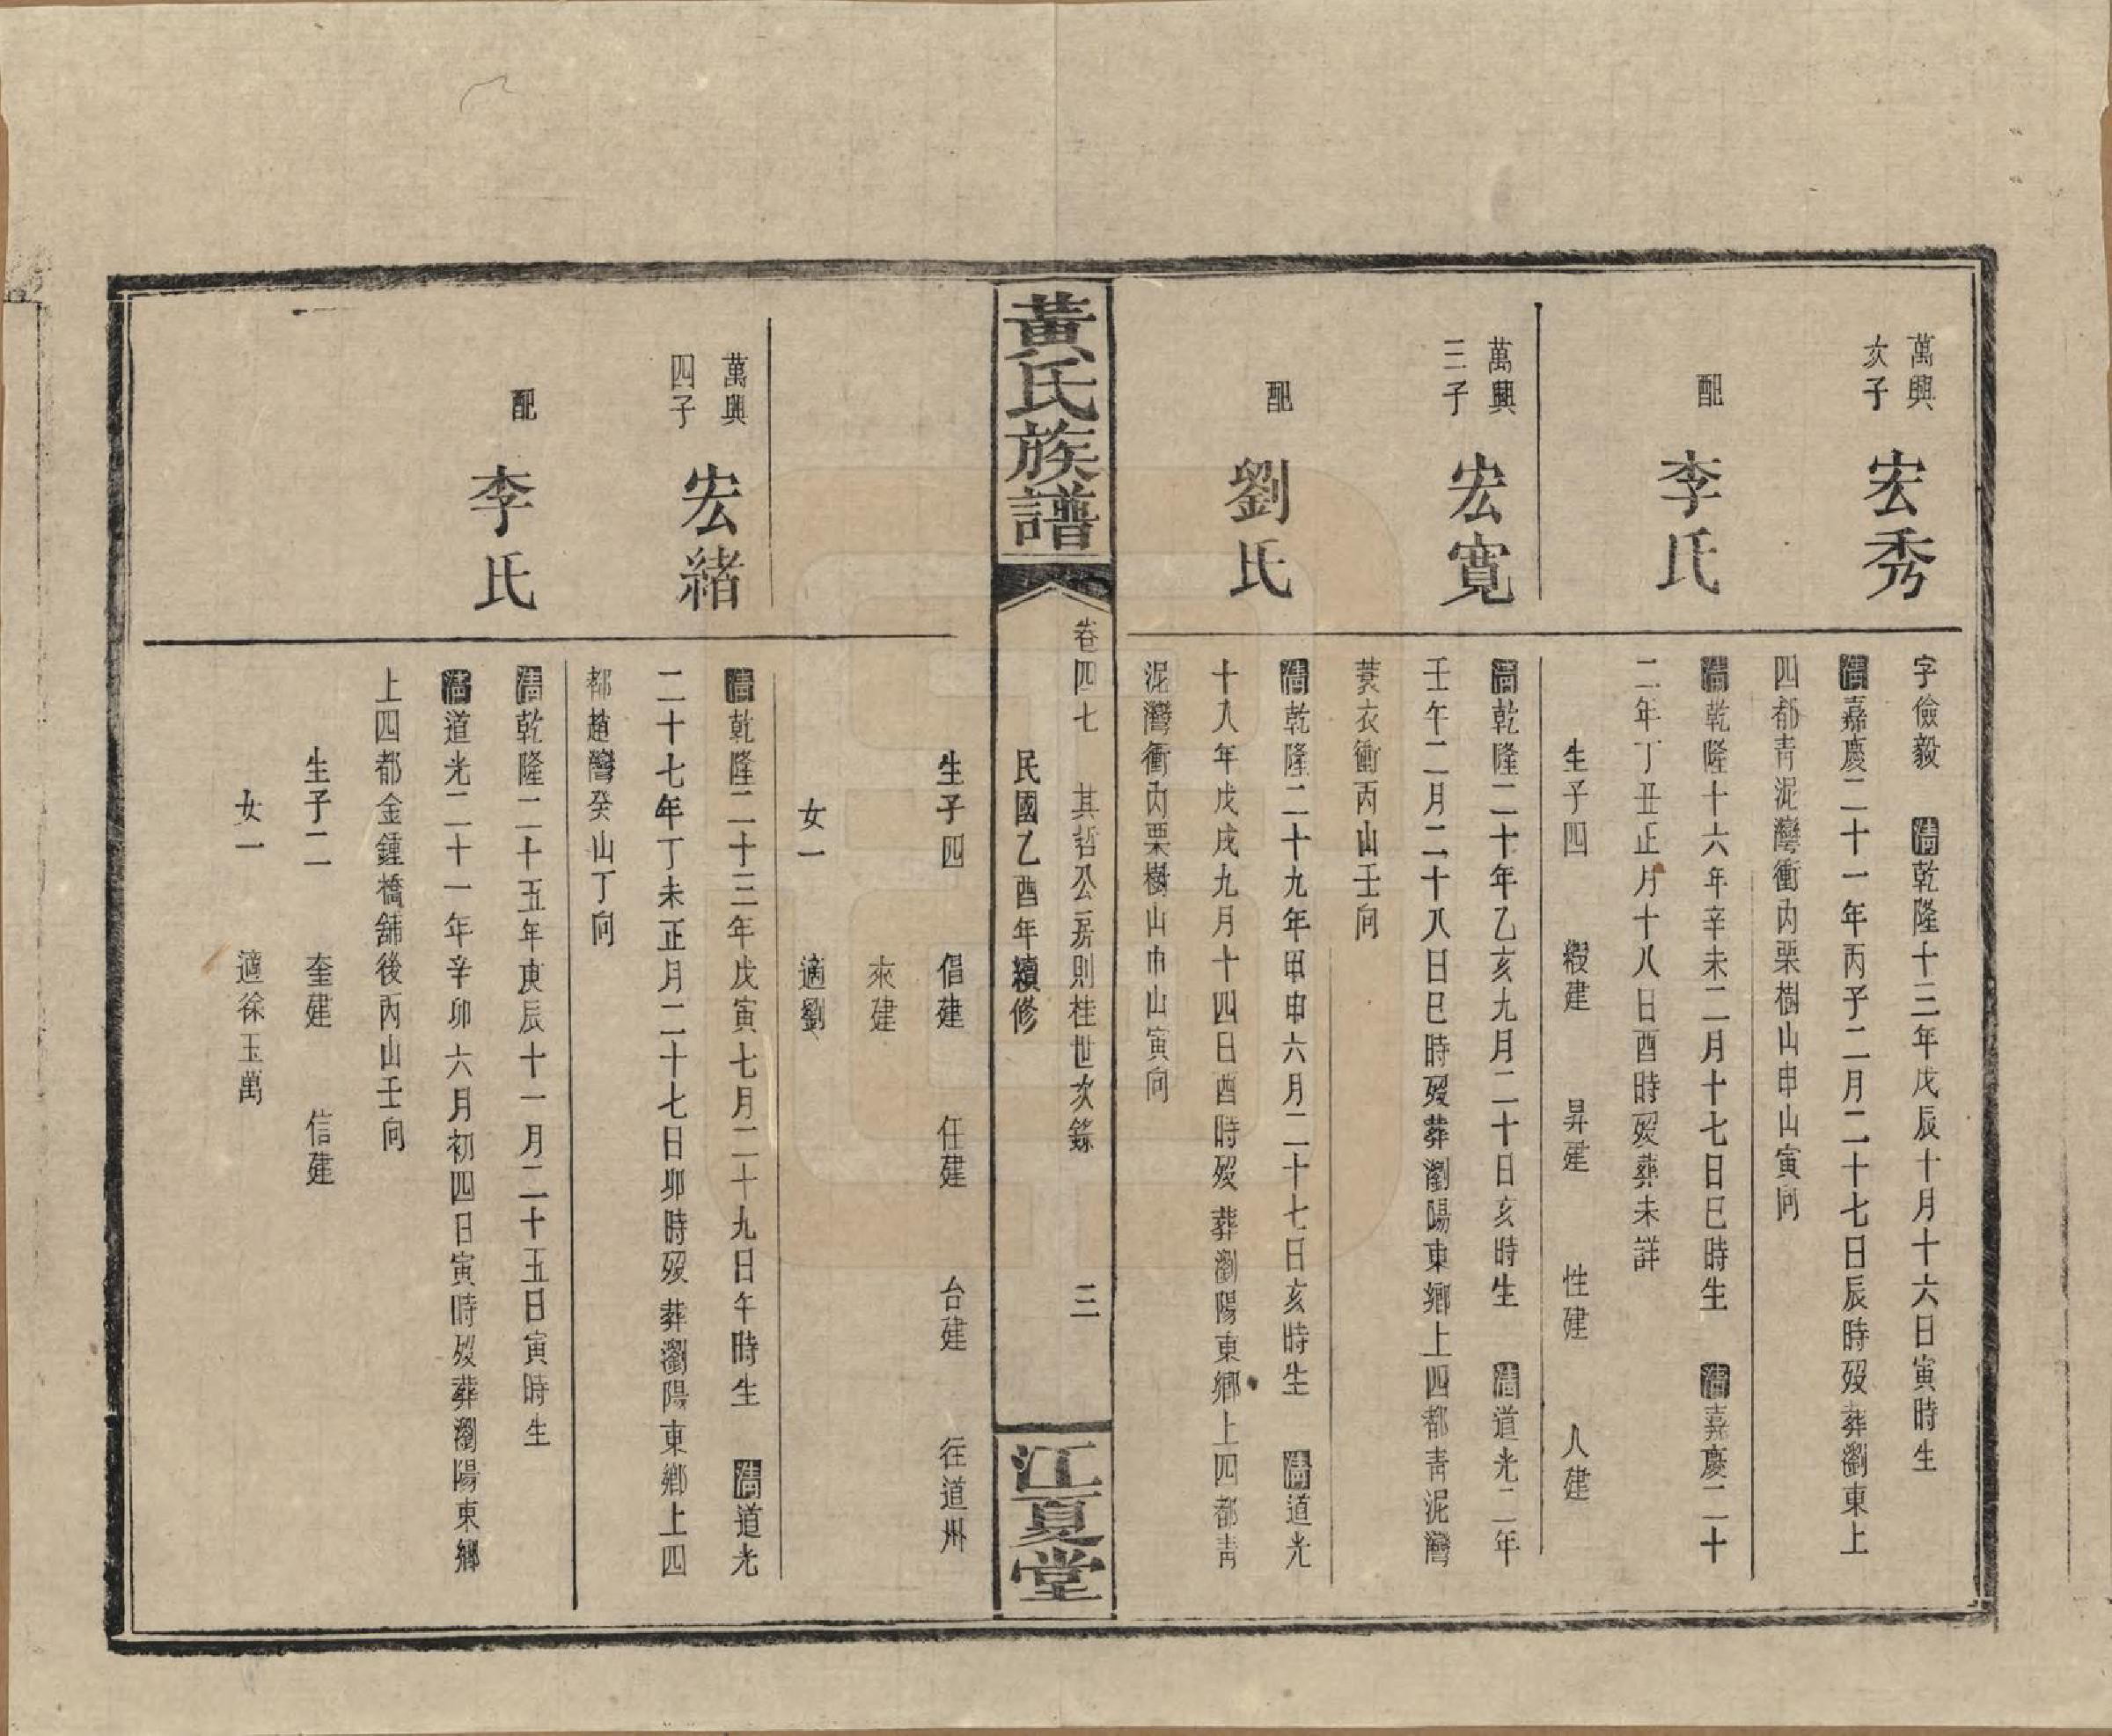 萬興
次子
宏秀
字儉毅 清乾隆十三年戊辰十月十六日寅時生
清嘉慶二十一年丙子二月二十七日辰時歿葬瀏東上
四都青泥灣衝內栗樹山申山寅向
配
李氏
清乾隆十六年辛未二月十七日巳時生 清嘉慶二十
二年丁丑正月十八日酉時歿葬未詳
生子四 緞建 昇建 性建 人建
萬興
三子
宏寬
清乾隆二十年乙亥九月二十日亥時生 清道光二年
壬午二月二十八日巳時歿葬瀏陽東鄉上四都青泥灣
蓑衣衝丙山壬向
配
劉氏
清乾隆二十九年甲申六月二十七日亥時生 清道光
十八年戊戌九月十四日酉時歿葬瀏陽東鄉上四都青
泥灣衝內栗樹山申山寅向
黃氏族譜
卷四七 其哲公房則桂世次錄 三
民國乙酉年續修
江夏堂
生子四 倡建 任建 台建 往道州
來建
女一 適劉
萬興
四子
宏緒
清乾隆二十三年戊寅七月二十九日午時生 清道光
二十七年丁未正月二十七日卯時歿葬瀏陽東鄉上四
都趙灣癸山丁向
配
李氏
清乾隆二十五年庚辰十一月二十五日寅時生
清道光二十一年辛卯六月初四日寅時歿葬瀏陽東鄉
上四都金鍾橋舖後丙山壬向
生子二 奎建 信建
女一 適徐玉萬